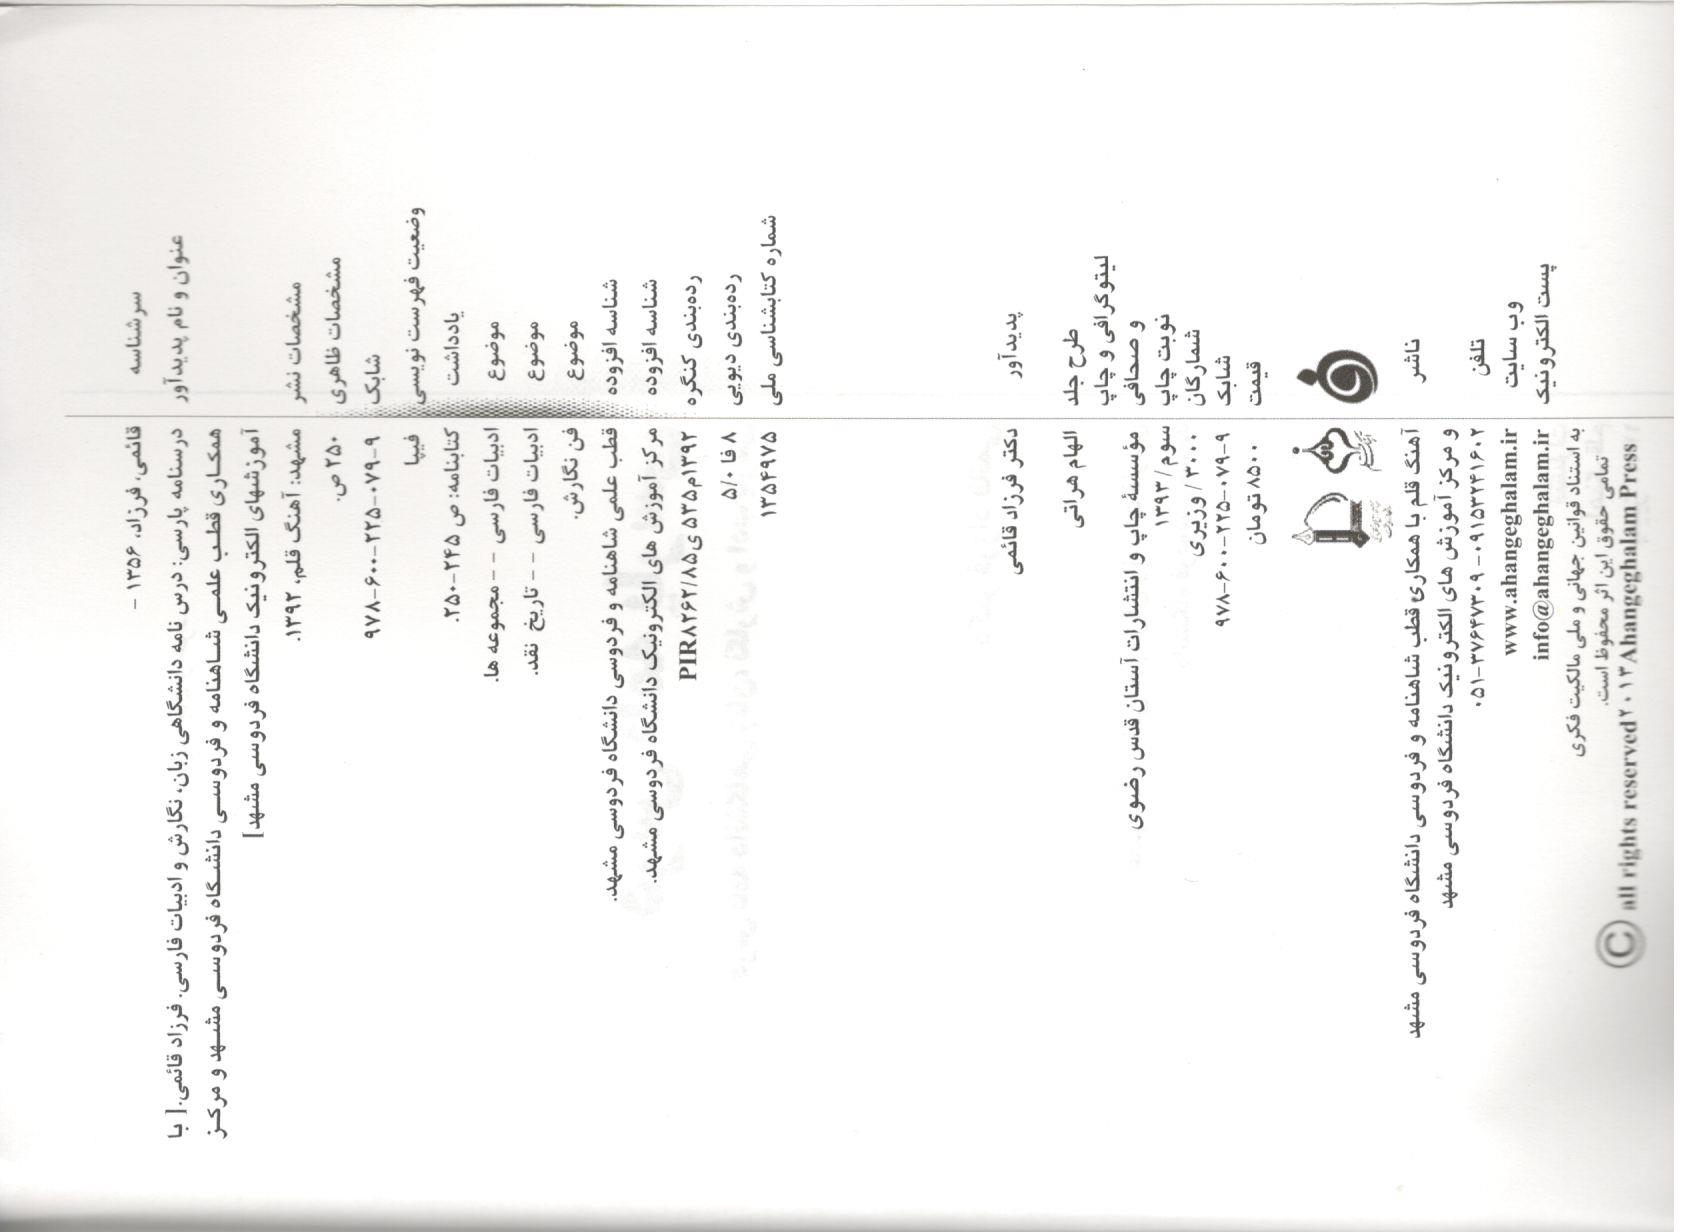 سرشناسه قائمی، فرزاد، ۱۳۵۶ -
عنوان و نام پدیدآور درسنامه پارسی: درس نامه دانشگاهی زبان، نگارش و ادبیات فارسی. فرزاد قائمی.[ با
همکاری قطب علمی شاهنامه و فردوسی دانشگاه فردوسی مشهد و مرکز
آموزشهای الکترونیک دانشگاه فردوسی مشهد]
مشخصات نشر مشهد: آهنگ قلم، ۱۳۹۲.
مشخصات ظاهری ۲۵۰ ص.
شابک ۹۷۸-۶۰۰-۲۲۵-۰۷۹-۹
وضعیت فهرست نویسی فیپا
یادداشت کتابنامه: ص ۲۴۵-۲۵۰.
موضوع ادبیات فارسی - - مجموعه ها.
موضوع ادبیات فارسی - - تاریخ نقد.
موضوع فن نگارش.
شناسه افزوده قطب علمی شاهنامه و فردوسی دانشگاه فردوسی مشهد.
شناسه افزوده مرکز آموزش های الکترونیک دانشگاه فردوسی مشهد.
رده‌بندی کنگره ۱۳۹۲م۵۳۵ی۸۵/PIR۸۲۶۲
رده‌بندی دیویی ۸فا ۵/۰
شماره کتابشناسی ملی ۱۳۵۴۹۷۵
پدیدآور دکتر فرزاد قائمی
طرح جلد الهام هراتی
لیتوگرافی و چاپ
و صحافی مؤسسهٔ چاپ و انتشارات آستان قدس رضوی
نوبت چاپ سوم/ ۱۳۹۳
شمارگان ۳۰۰۰/ وزیری
شابک ۹۷۸-۶۰۰-۲۲۵-۰۷۹-۹
قیمت ۸۵۰۰ تومان
ناشر آهنگ قلم با همکاری قطب شاهنامه و فردوسی دانشگاه فردوسی مشهد
و مرکز آموزش های الکترونیک دانشگاه فردوسی مشهد
تلفن ۰۵۱-۳۷۶۴۷۳۰۹ -۰۹۱۵۳۲۴۱۶۰۲
وب سایت www.ahangeghalam.ir
پست الکترونیک info@ahangeghalam.ir
به استناد قوانین جهانی و ملی مالکیت فکری
تمامی حقوق این اثر محفوظ است.
© all rights reserved۲۰۱۳Ahangeghalam Press